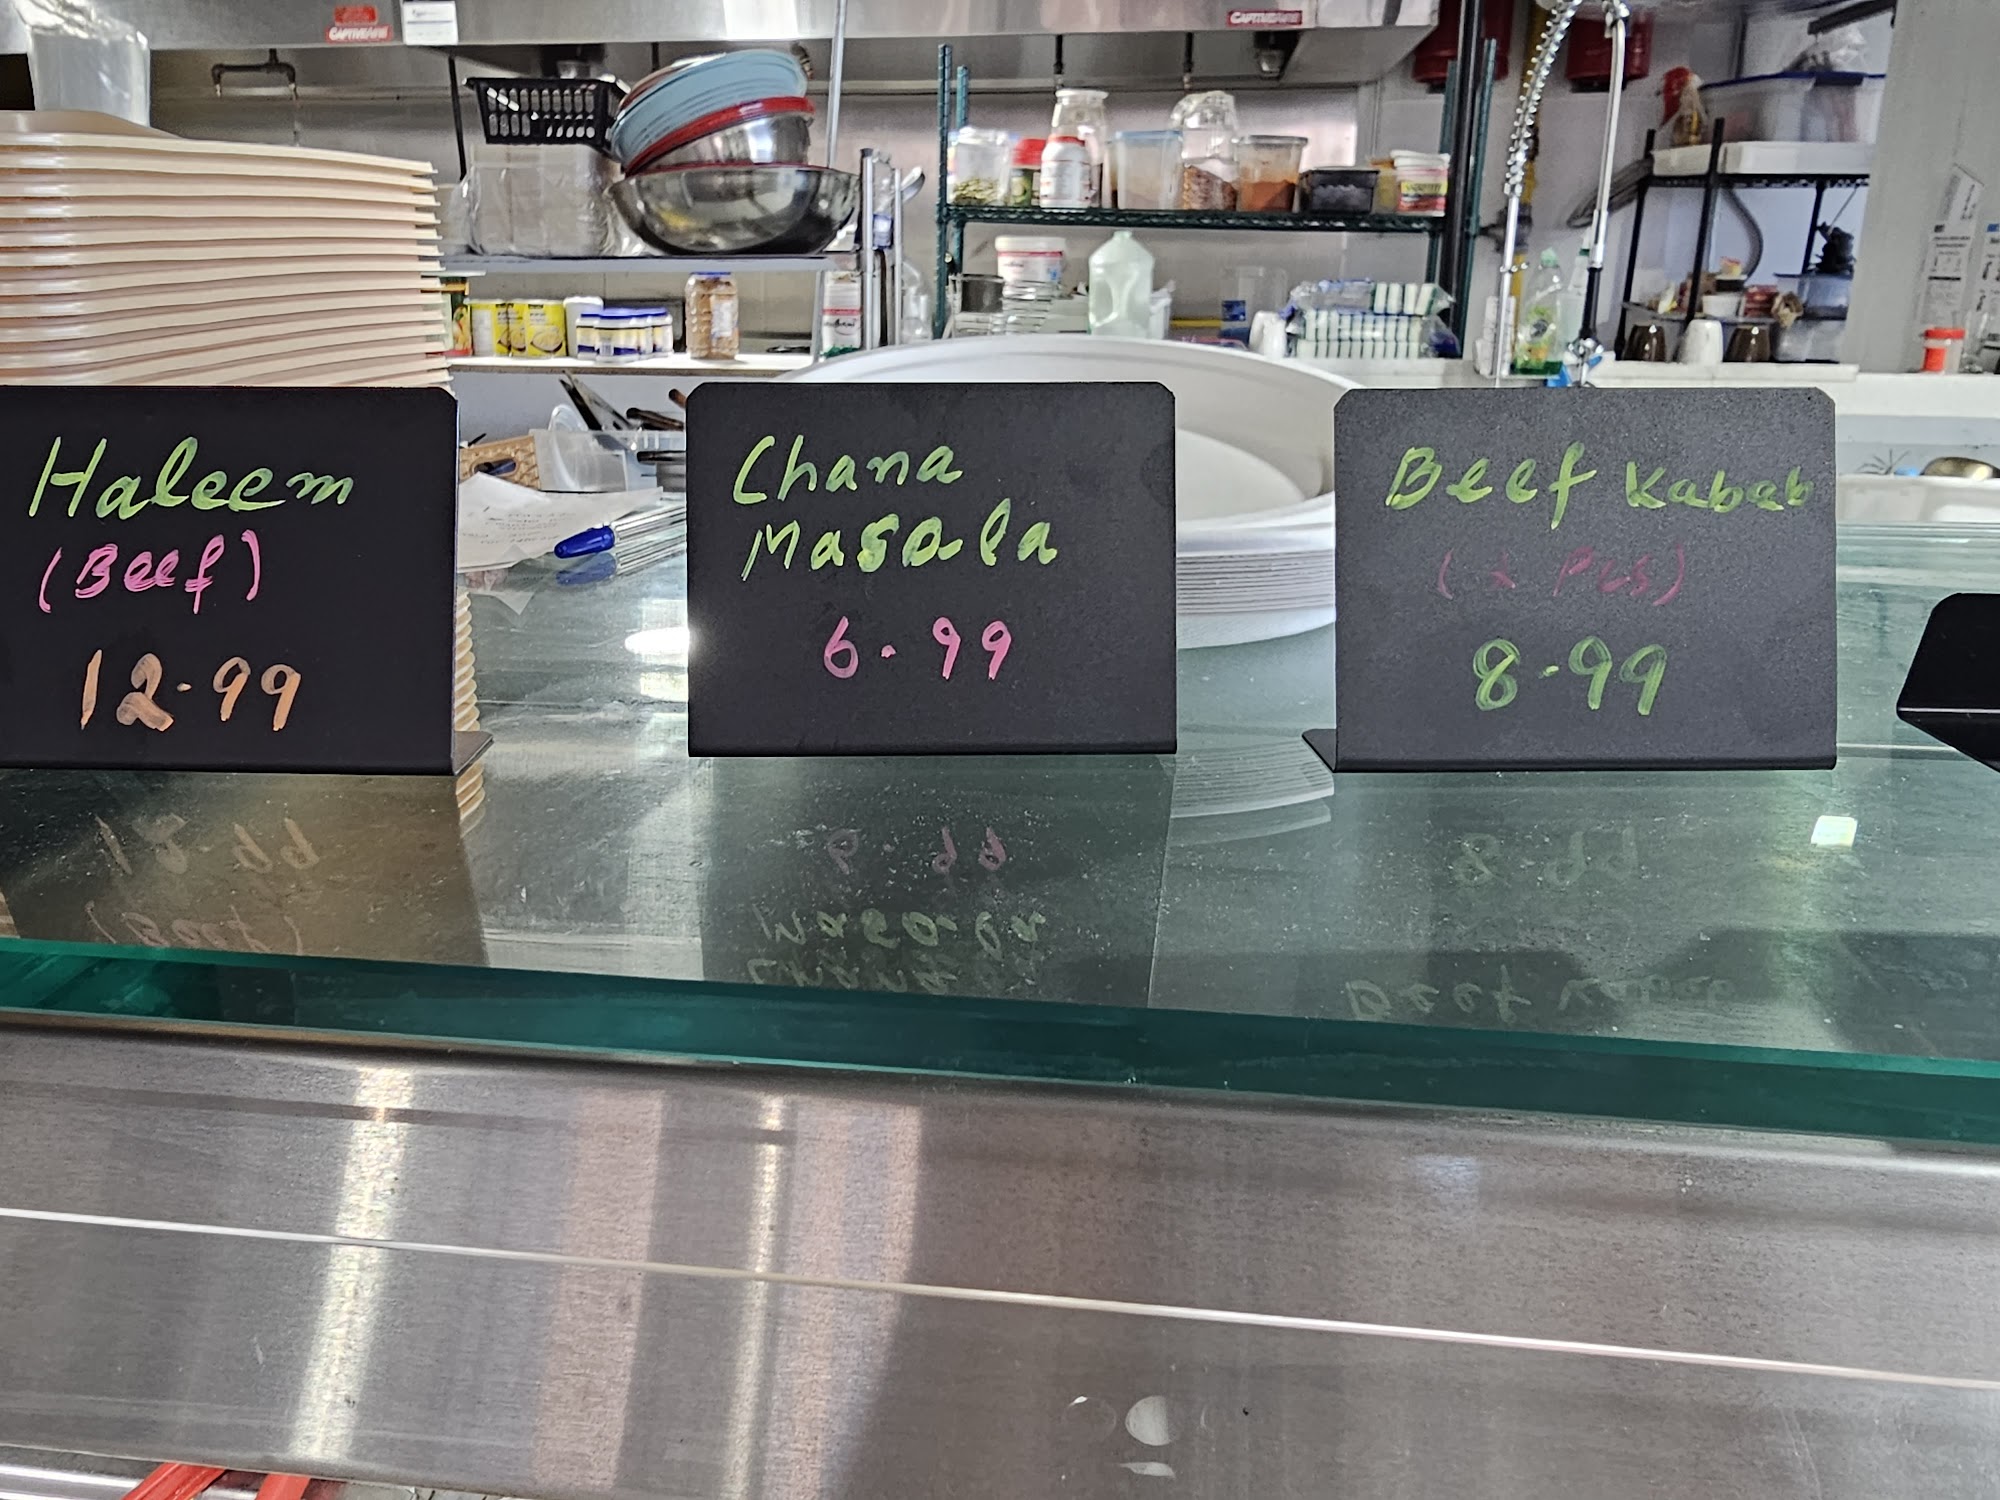 CAPTIVEAIRE
CAPTIVEAIRE
Haleem
(Beef)
12.99
Chana
Masala
6.99
Beef Kabab
Pcs)
8.99